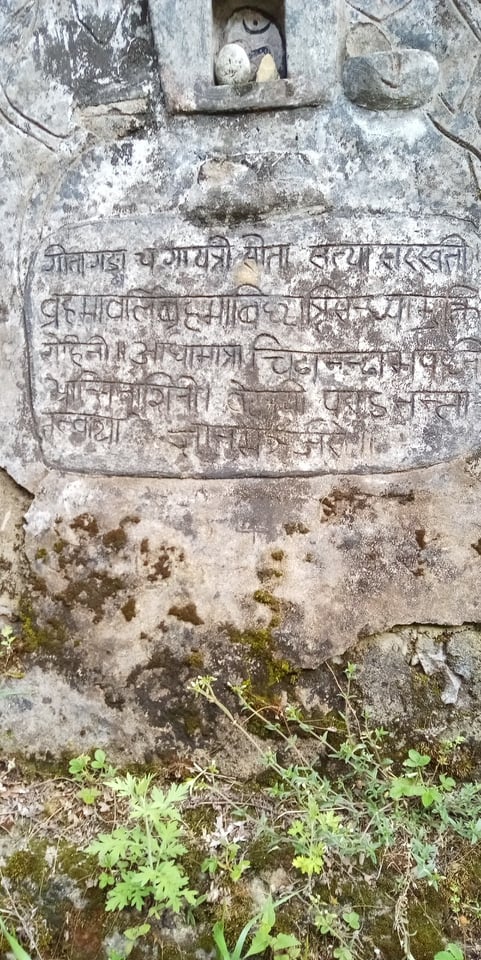 गीता गङ्गा च गायत्री सीता सत्या सरस्वती
ब्रह्मावलिब्रह्माविध्यात्रिसन्ध्यामुक्ति
गेहिनी॥ आधामात्रा चिदानन्दाभपध्नी
भ्रान्तिनाशिनी। वेदत्रयी पराऽनन्ता
तत्वार्था ज्ञान